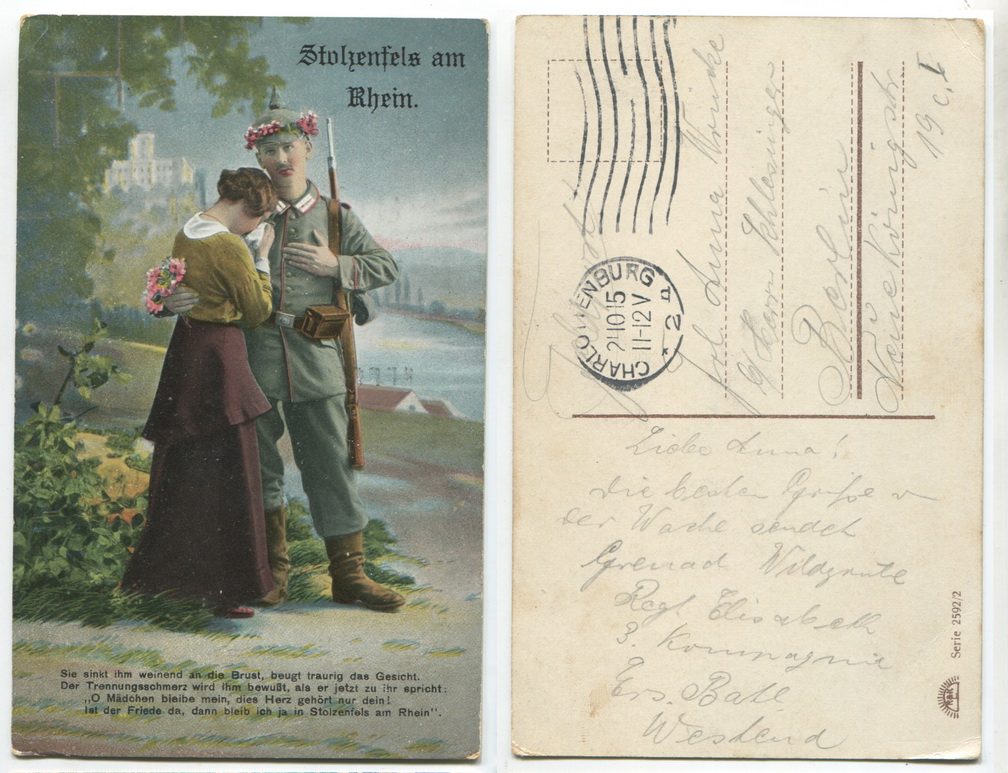 Stolzenfels am
Rhein.
Sie sinkt ihm weinend an die Brust, beugt traurig das Gesicht.
Der Trennungsschmerz wird ihm bewußt, als er jetzt zu ihr spricht:
„O Mädchen bleibe mein, dies Herz gehört nur dein!
Ist der Friede da, dann bleib ich ja in Stolzenfels am Rhein“.
CHARLOTTENBURG
2
211015
11-12 V
Anna
b/ Herrn Schlesinger
Berlin
19 c. I
Liebe Anna!
die besten Grüße v
der Wache sendet
Grenad
Regt. Elisabeth
3. Kompagnie
Ers. Batl
Westend
Serie 2592/2